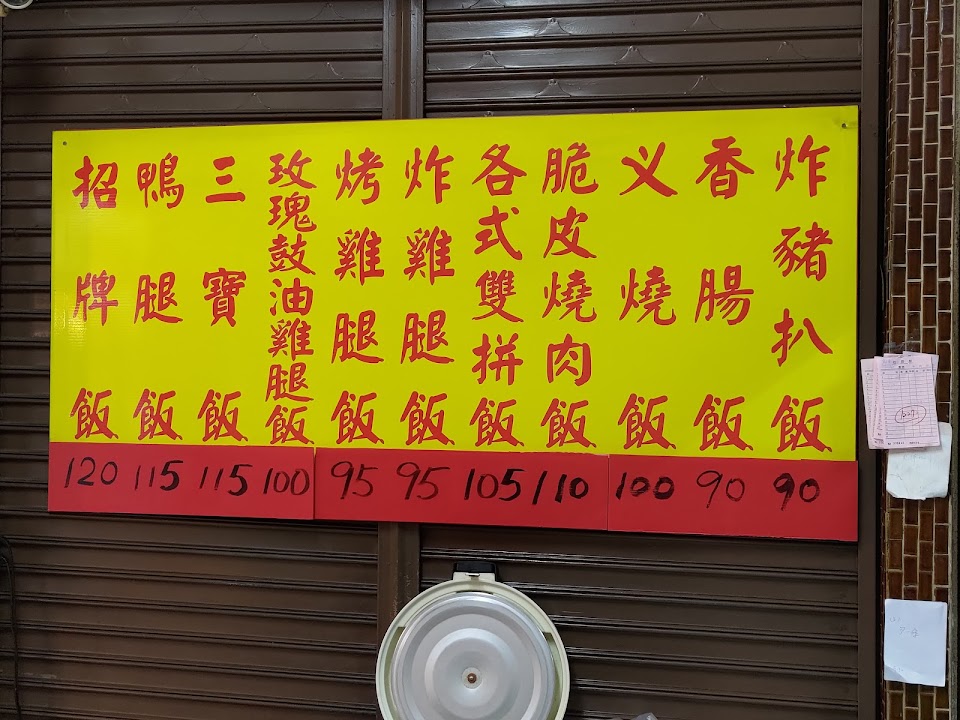 炸豬扒飯 90
香腸飯 90
义燒飯 100
脆皮燒肉飯 110
各式雙拼飯 105
炸雞腿飯 95
烤雞腿飯 95
玫瑰鼓油雞腿飯 100
三寶飯 115
鴨腿飯 115
招牌飯 120